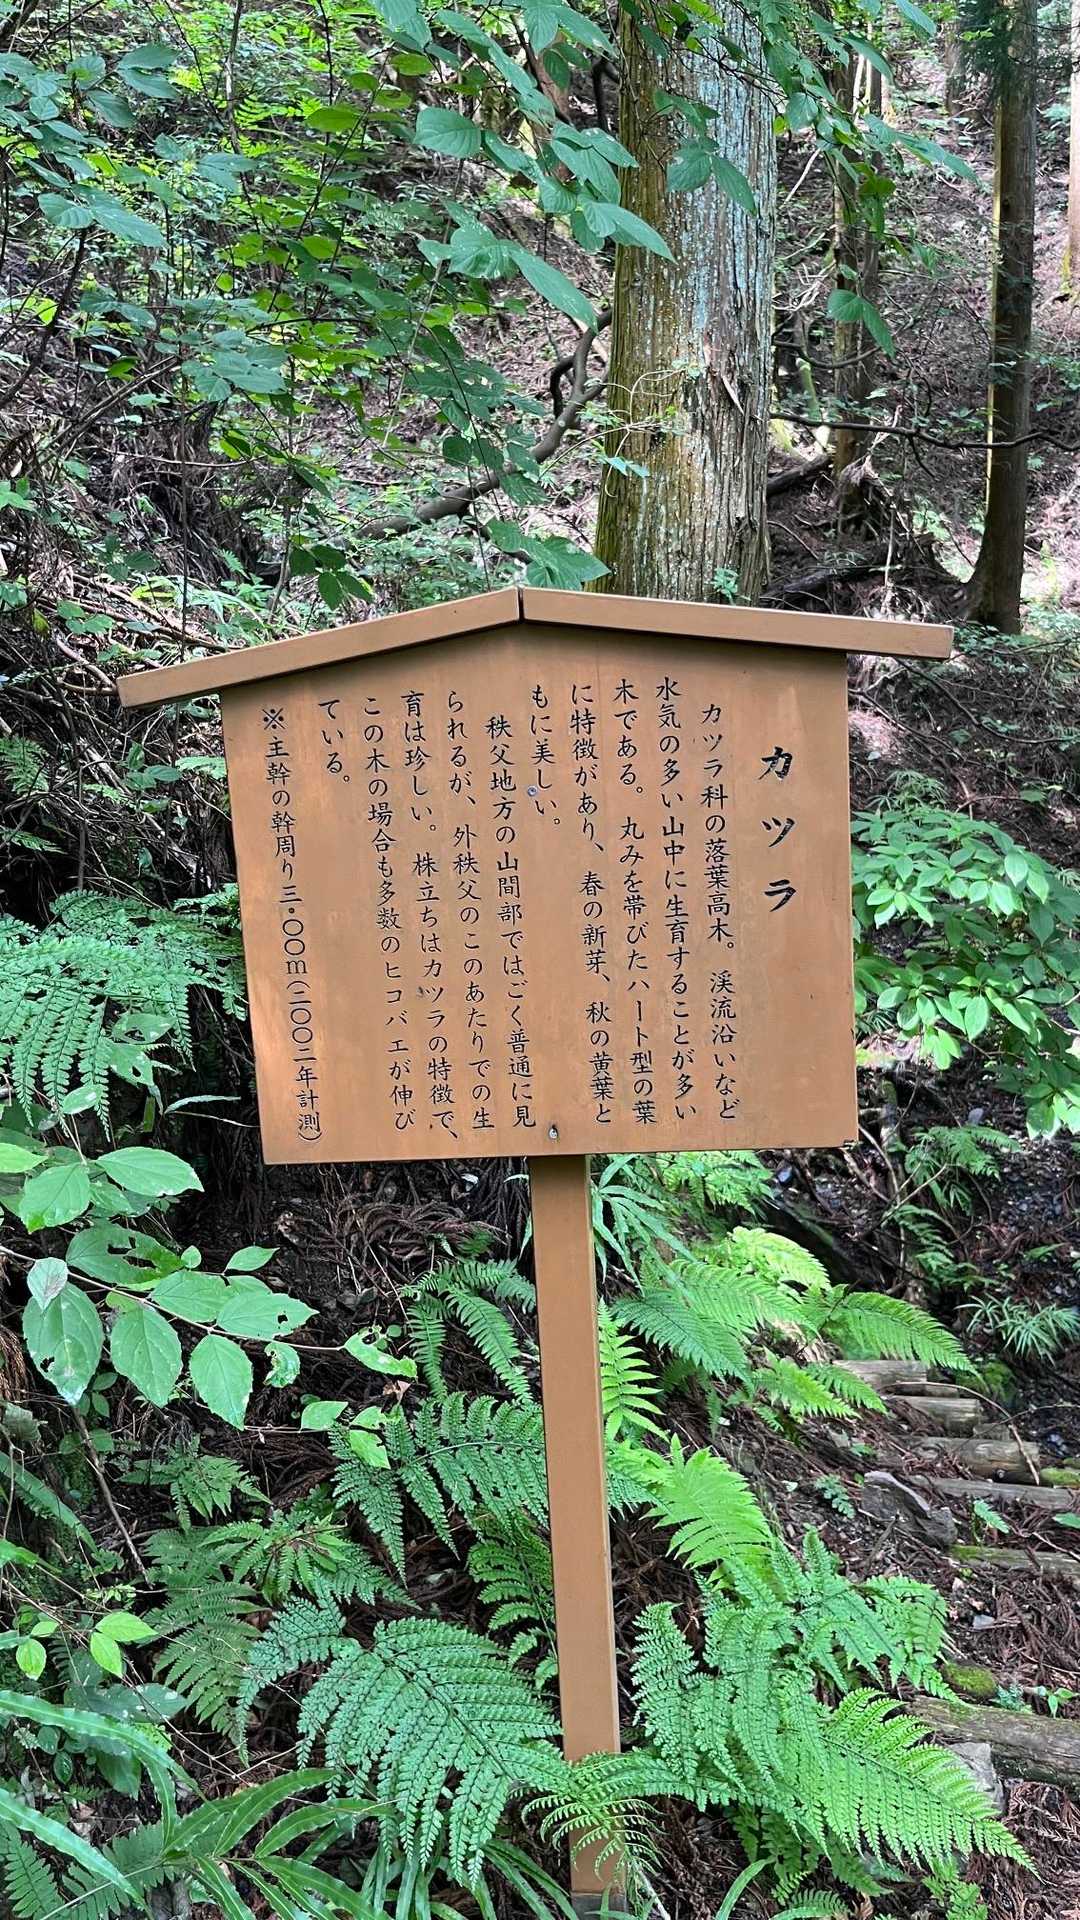 カツラ
カツラ科の落葉高木。渓流沿いなど
水気の多い山中に生育することが多い
木である。丸みを帯びたハート型の葉
に特徴があり、春の新芽、秋の黄葉と
もに美しい。
秩父地方の山間部ではごく普通に見
られるが、外秩父のこのあたりでの生
育は珍しい。株立ちはカツラの特徴で、
この木の場合も多数のヒコバエが伸び
ている。
※主幹の幹周り三・〇〇m(二〇〇二年計測)